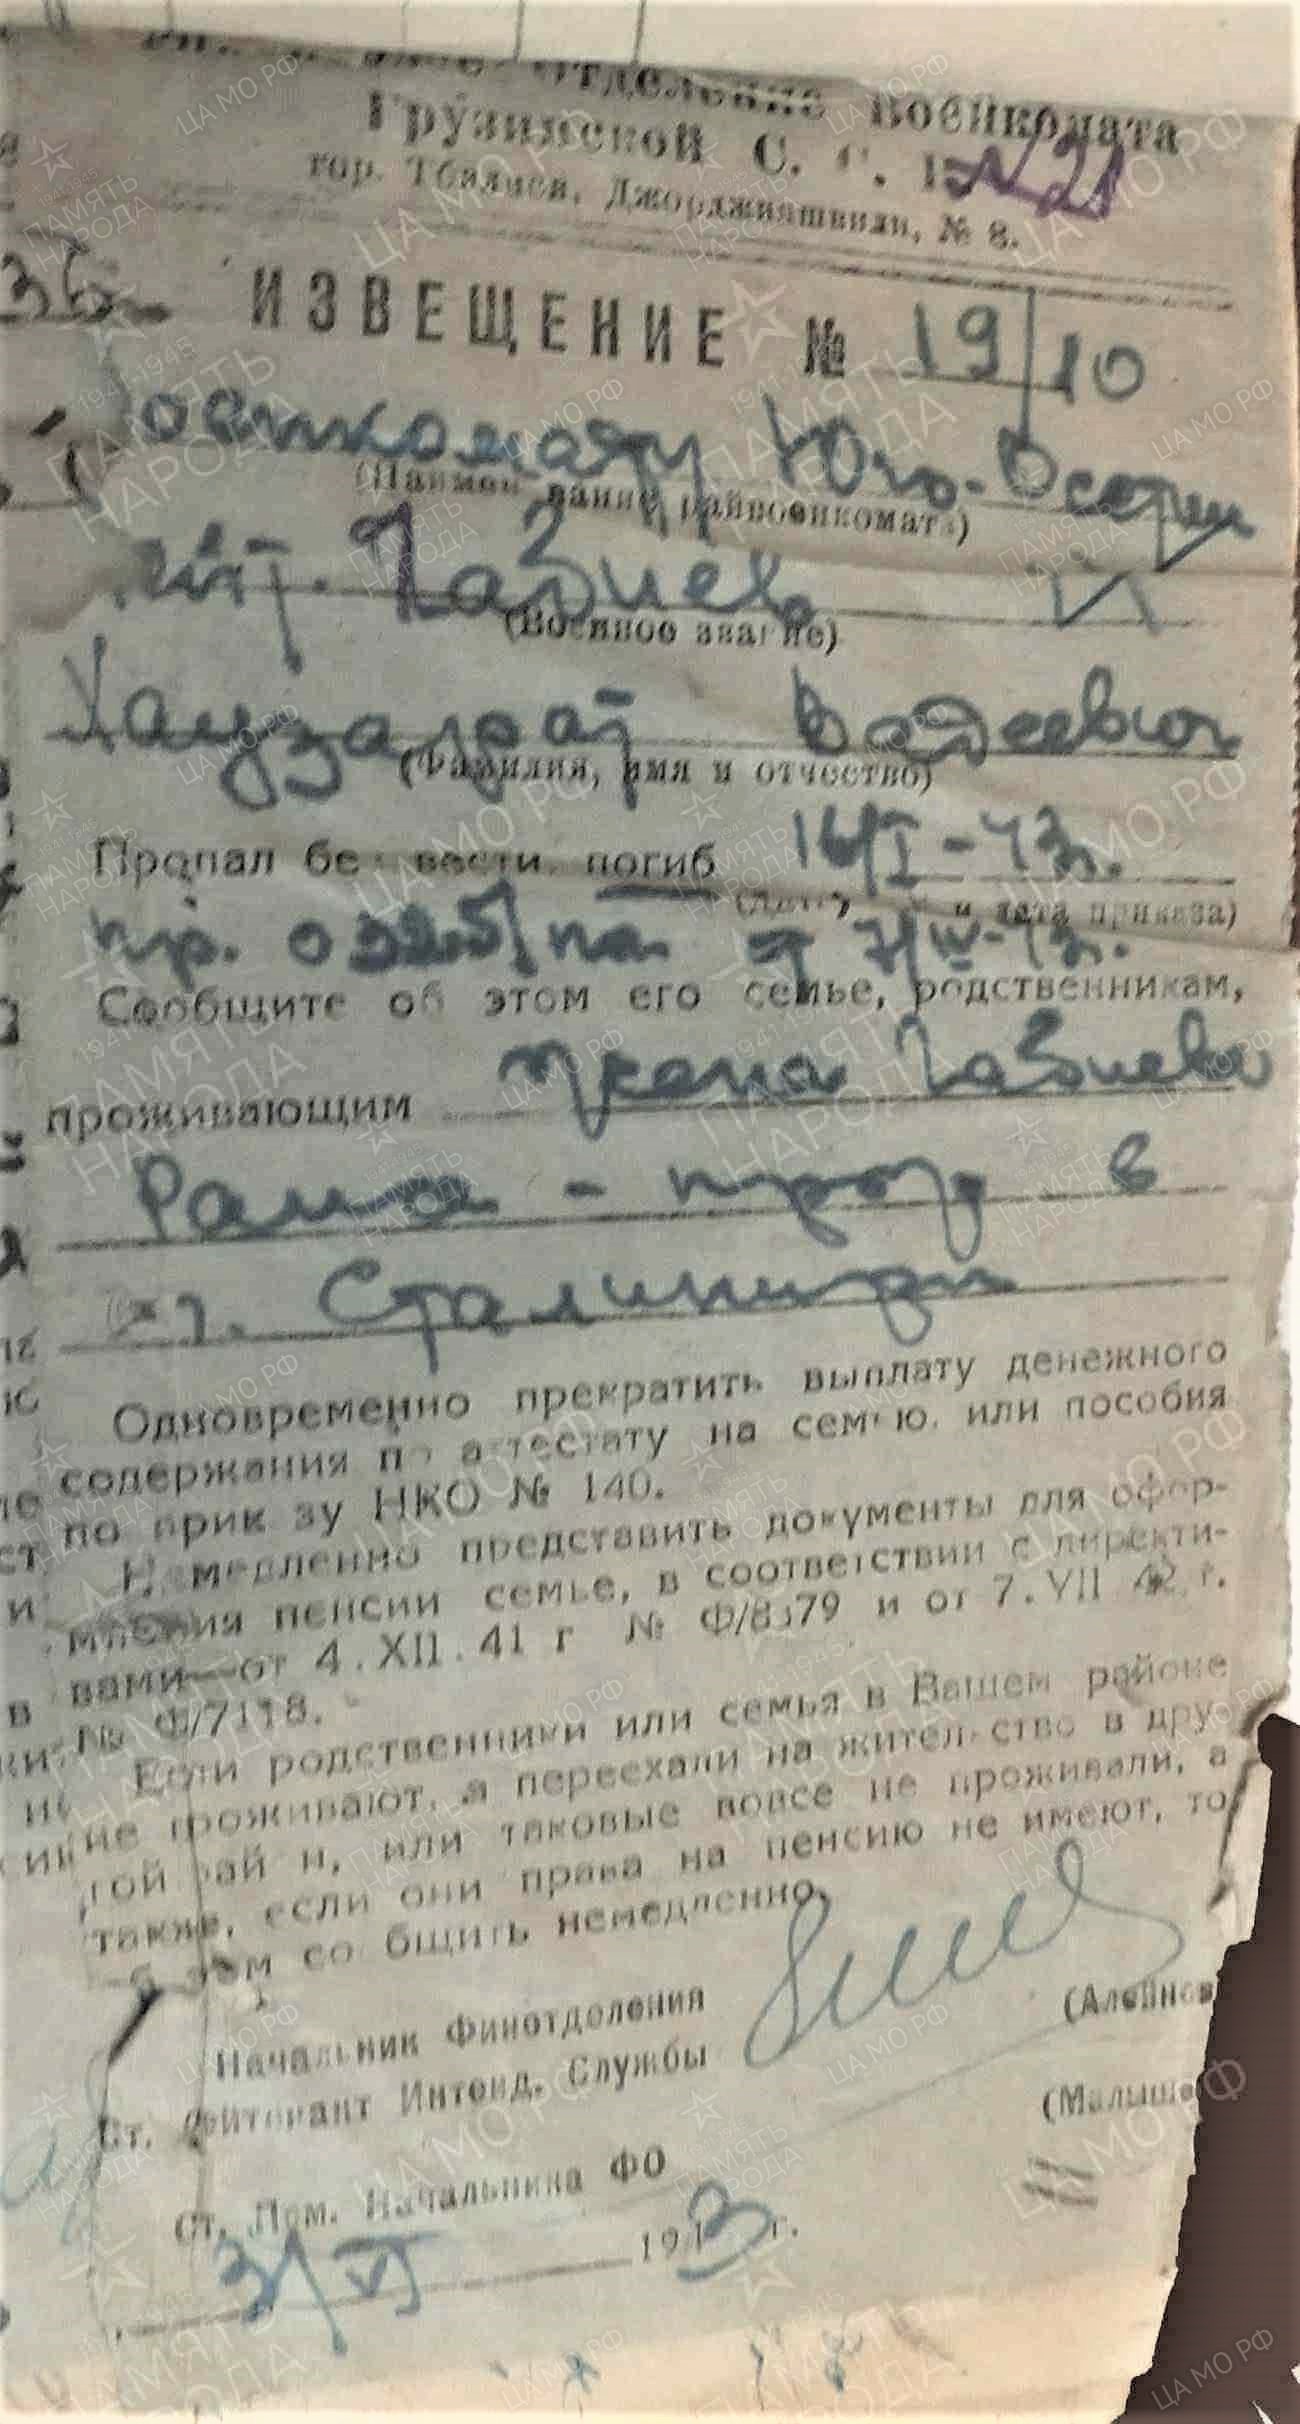 отделение Военкомата
Грузинской С. С.
№21
гор. Тбилиси, Джорджиашвили, № 8.
ИЗВЕЩЕНИЕ № 19/10
Военкомату Юго-Осетии
(Наимен вание райвоенкомата)
Габиев
(Военное звание)
Вадеевич
(Фамилия, имя и отчество)
Пропал без вести, погиб 16/I-43г.
и дата приказа)
пр. 0325/па от 7/IV-43г.
Сообщите об этом его семье, родственникам,
проживающим жена Габиева
Раиса - прож в
г. Сталинири
Одновременно прекратить выплату денежного
содержания по аттестату на семью, или пособия
по прик зу НКО № 140.
Немедленно представить документы для офор-
мления пенсии семье, в соответствии с директи-
вами—от 4.XII.41 г № Ф/8379 и от 7.VII 42 г.
№ Ф/7118.
Если родственники или семья в Вашем районе
не проживают, а переехали на жительство в дру-
гой рай н, или таковые вовсе не проживали, а
также, если они права на пенсию не имеют, то
сообщить немедленно.
Начальник Финотделения
Ст. Лейтенант Интенд. Службы
(Алейнов
Ст. Пом. Начальника ФО
(Малыше
3/VI 1943 г.